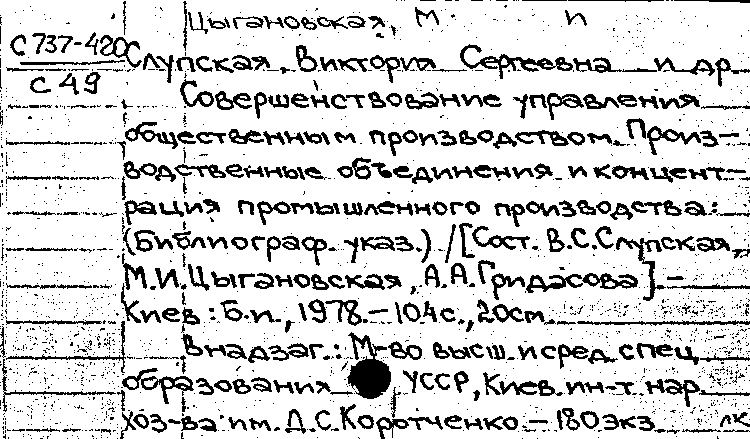 Цыгановская, М. И
С737-420
С49
Слупская, Виктория Сергеевна и др
Совершенствование управления
общественным производством. Произ-
водственные объединения и концент-
рация промышленного производства:
(Библиограф. указ.) /[Сост. В.С.Слупская,
М.И.Цыгановская, А.А.Гридасова].-
Киев: Б.и., 1978.-104с., 20см.
Внадзаг.: М-во высш. и сред. спец.
образования УССР, Киев. ин-т нар.
хоз-ва им. Д.С.Коротченко.-180экз. лк